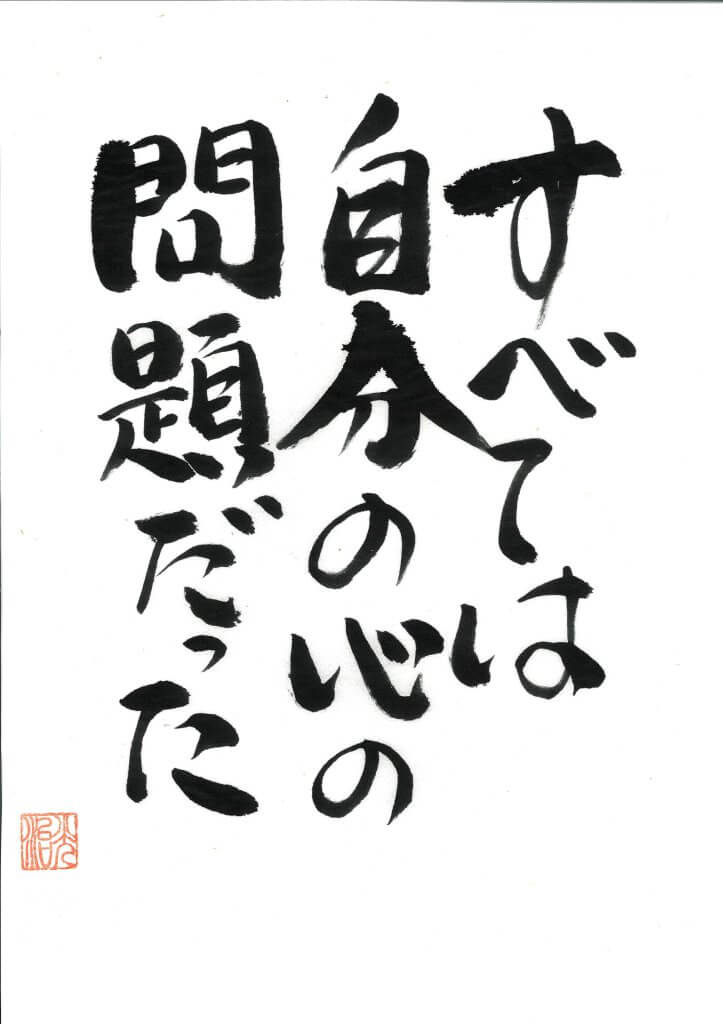 すべては
自分の心の
問題だった